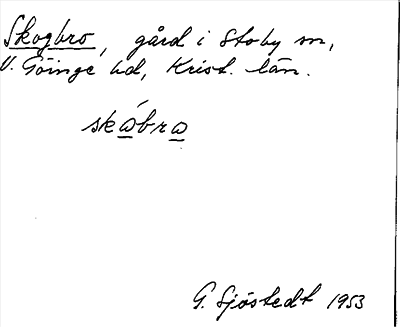 Skogbro, gård i Stoby sn,
V. Göinge hd, Krist. län.
skábra
G. Sjöstedt 1953